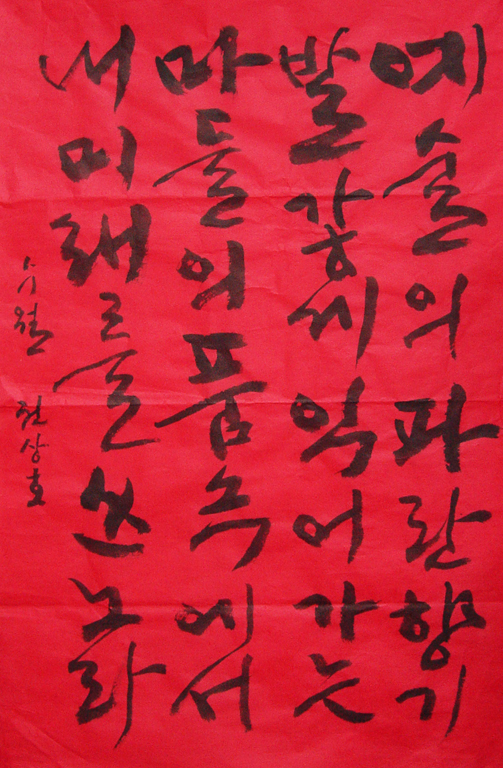 예술의 파란 향기
발갛게 익어가는
마들의 품속에서
내 미래를 쓰노라
수월 권상호